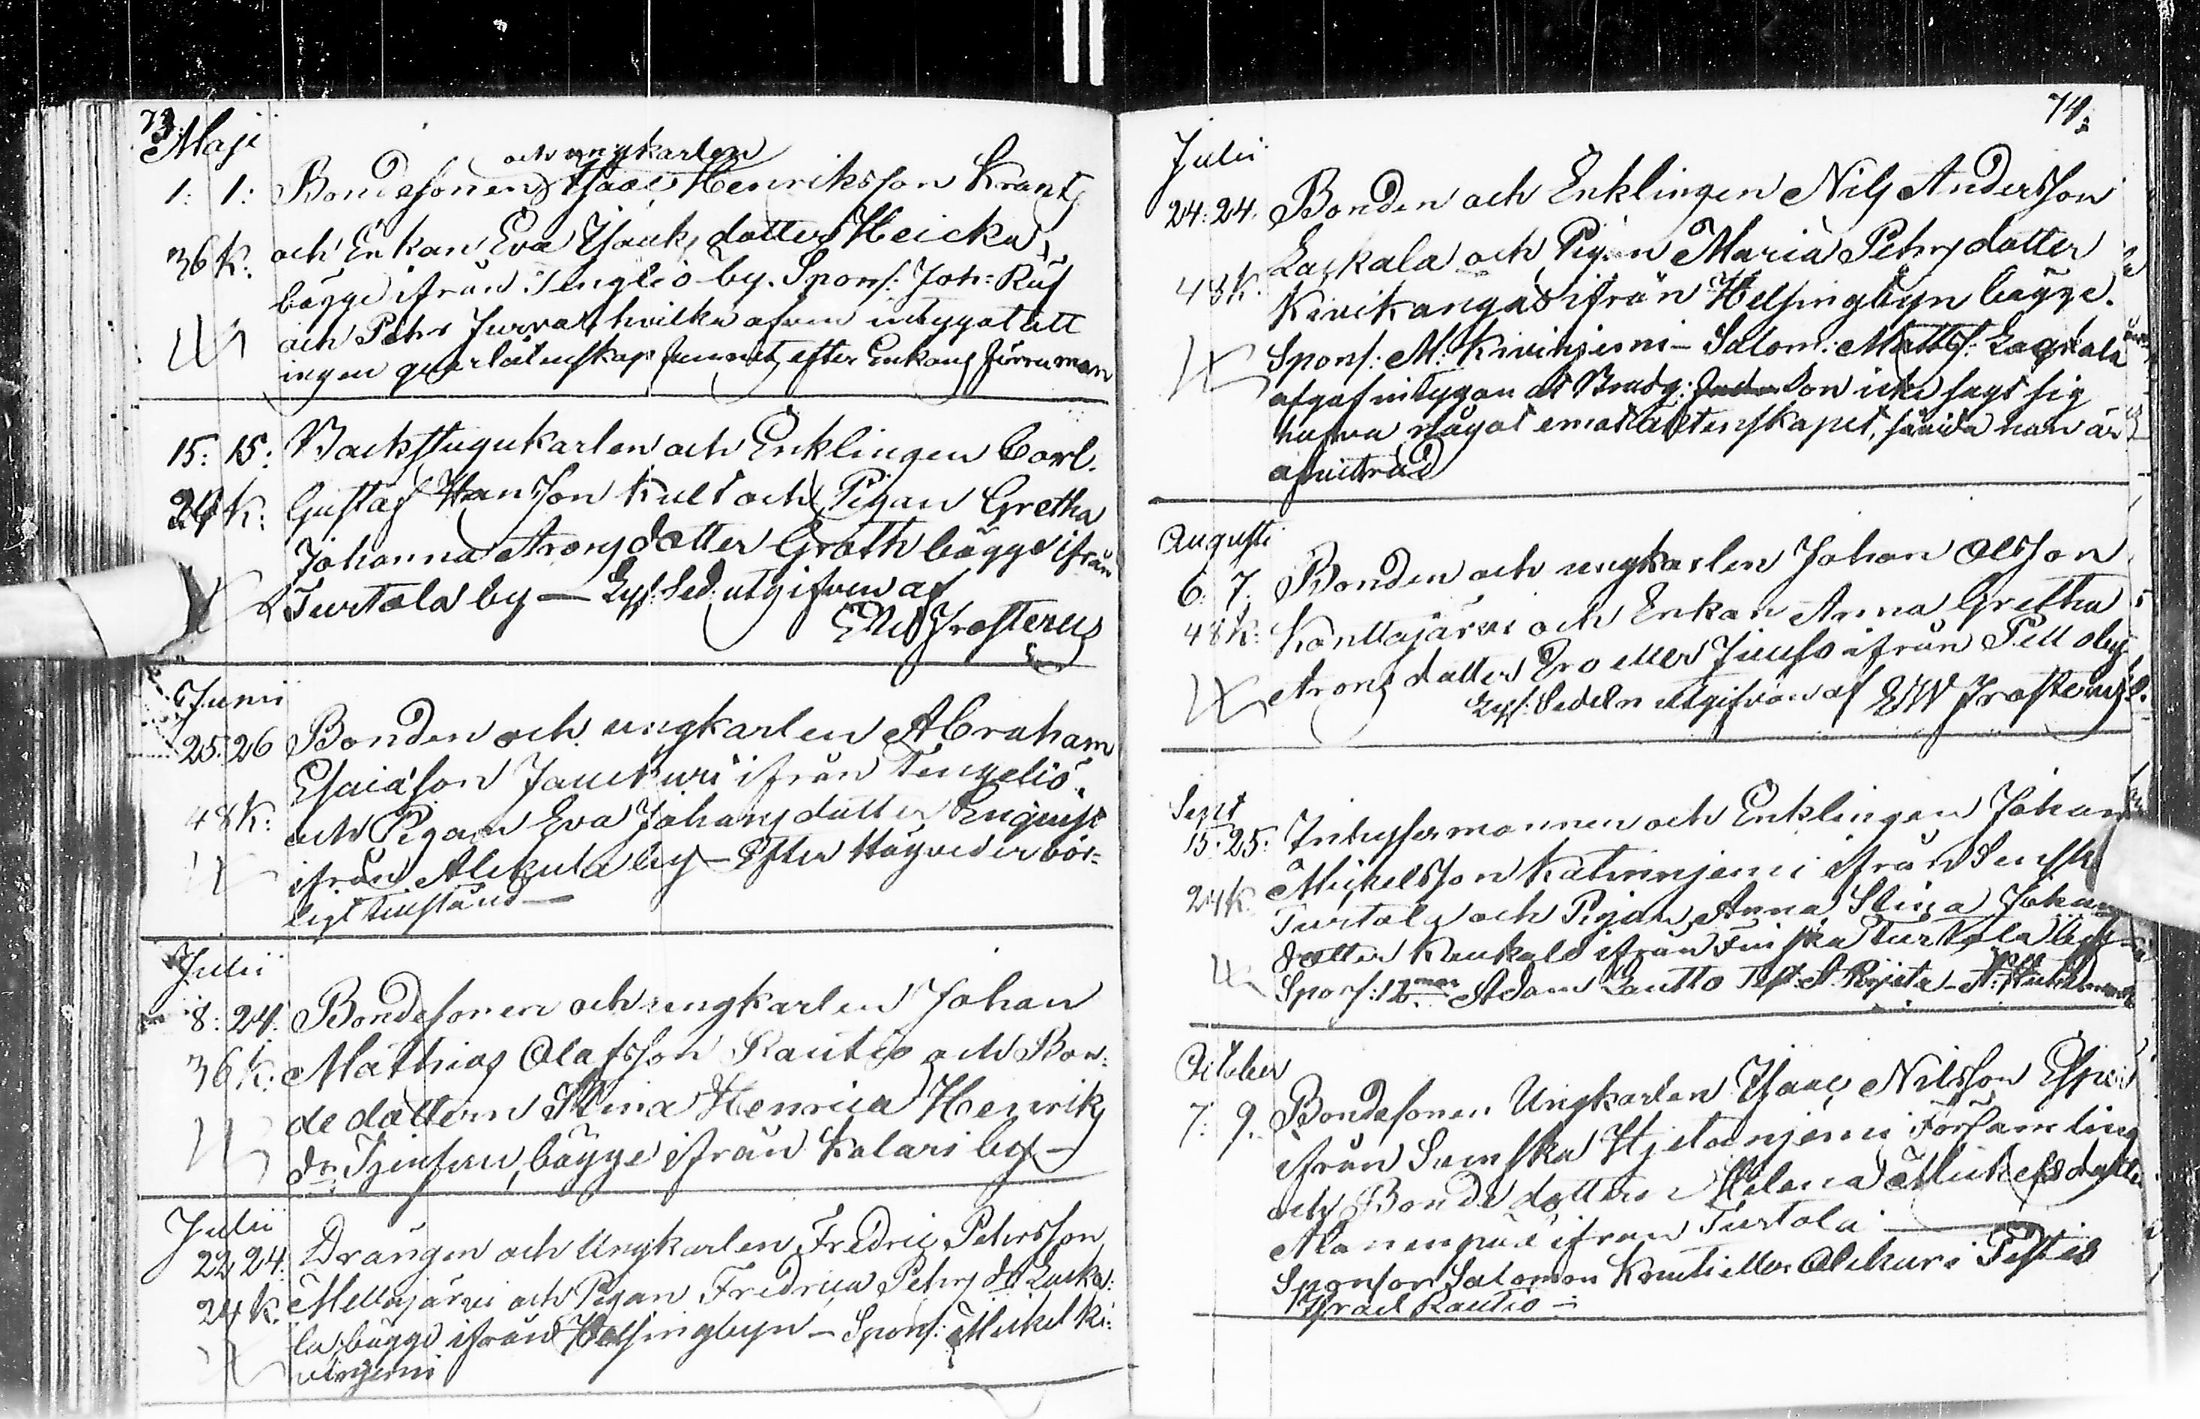 73.
Maji
och ungkarlen
1: 1: Bondesonen Isaac Henriksson Krantz
36 K: och Enkan Eva Isaks dotter Heicka,
bägge ifrån Tengliö by. Spons: Joh:
och Pehr Jurva, hvilka äfven intygat att
ingen qvarlåtenskap funnits efter Enkans förra man
15: 15: Backstugukarlen och Enklingen Carl
24 K: Gustaf Hansson Kult och Pigan Gretha
Johanna Arons dotter Groth bägge ifrån
Turtola by — Lys: Sed: utgifven af
Frosterus
Junii
25. 26 Bonden och ungkarlen Abraham
Esaiason Jankuri ifrån Tengeliö
48 K: och Pigan Eva Johans dotter Enqvist
ifrån Alkula by — Efter Högvederbör=
ligt tillstånd —
Julii
8: 24. Bondesonen och ungkarlen Johan
36 K: Mathias Olafsson Rautio och Bon=
de dottern Stina Henrica Henriks
dr bägge ifrån Kolari by —
Julii
22 24: Drängen och Ungkarlen Fredric Pehrsson
24 K. Mellajärvi och Pigan Fredrica Pehrs dr Laska=
la, bägge ifrån Helsingbyn — Spons: Michel Ki=
viniemi
74:
Julii
24: 24. Bonden och Enklingen Nils Andersson
Laskala och Pigan Maria Pehrs dotter
48 K. Kivikangas ifrån Helsingbyn bägge.
Spons: M: Kiviniemi — Salom: Matts: Laskala
afgaf intygan at Brudg: son icke sagt sig
hafva något emot äktenskapet, såvida han är
afvittrad
Augusti
6. 7. Bonden och ungkarlen Johan Olsson
48 K: Konttajärvi och Enkan Anna Gretha
Arons dotter Ero eller Juuso ifrån Pello by
Lys: Sedeln utgifven af EW Frosterus
Sept
15. 25: Inhysesmannen och Enklingen Johan
Mickelsson Kätinniemi ifrån
24 K. Turtola och Pigan Anna Stina Johans
dotter Kaukola ifrån Finska Turtola by
Spons: Adam Lautto Test: A.
October
7: 9. Bondesonen Ungkarlen Isaac Nilsson
ifrån Svenska Hjetaniemi Församling
och Bonde dottern Helena Mickelsdotter
Alanenpää ifrån Turtola —
Sponsor Salomon eller Alkuri Testis
Israel Rautio —